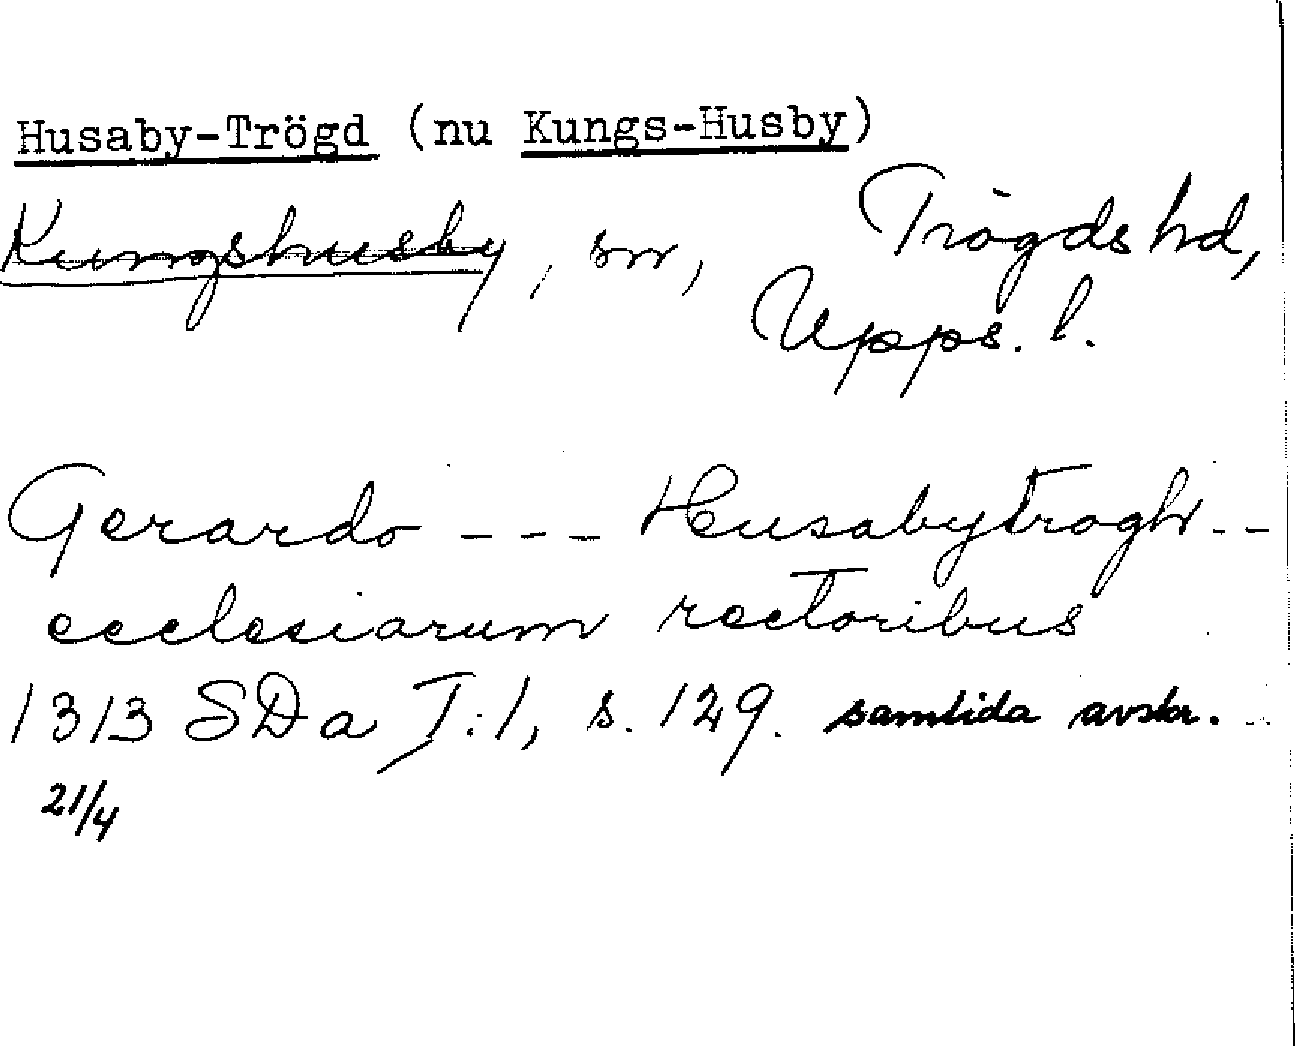 Husaby-Trögd (nu Kungs-Husby)
Kungshusby, sn, Trögds hd,
Upps. l.
Gerardo --- Husabytrogh --
ecclesiarum rectoribus
1313 SDa T. 1, s. 129. samtida avskr.
21/4